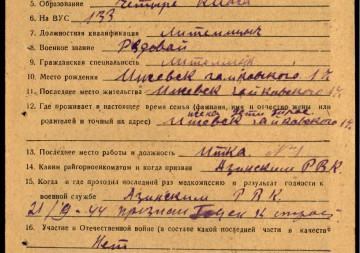 5. Образование Четыре класа
6. На ВУС 133
7. Должностная квалификация Литейщик
8. Военное звание Рядовой
9. Гражданская специальность Литейщик
10. Место рождения Ижевск 17.
11. Последнее место жительства Ижевск 17.
12. Где проживает в настоящее время семья (фамилия, имя и отчество жены или
родителей и точный их адрес)
Ижевск 17.
13. Последнее место работы и должность
14. Каким райгорвоенкоматом и когда призван Азинским Р.В.К.
15. Когда и где проходил последний раз медкомиссию и результат годности к
военной службе Азинским Р.В.К.
21/9-44 признан Годен к строев
16. Участие в Отечественной войне (в составе какой последней части в качестве
Нет